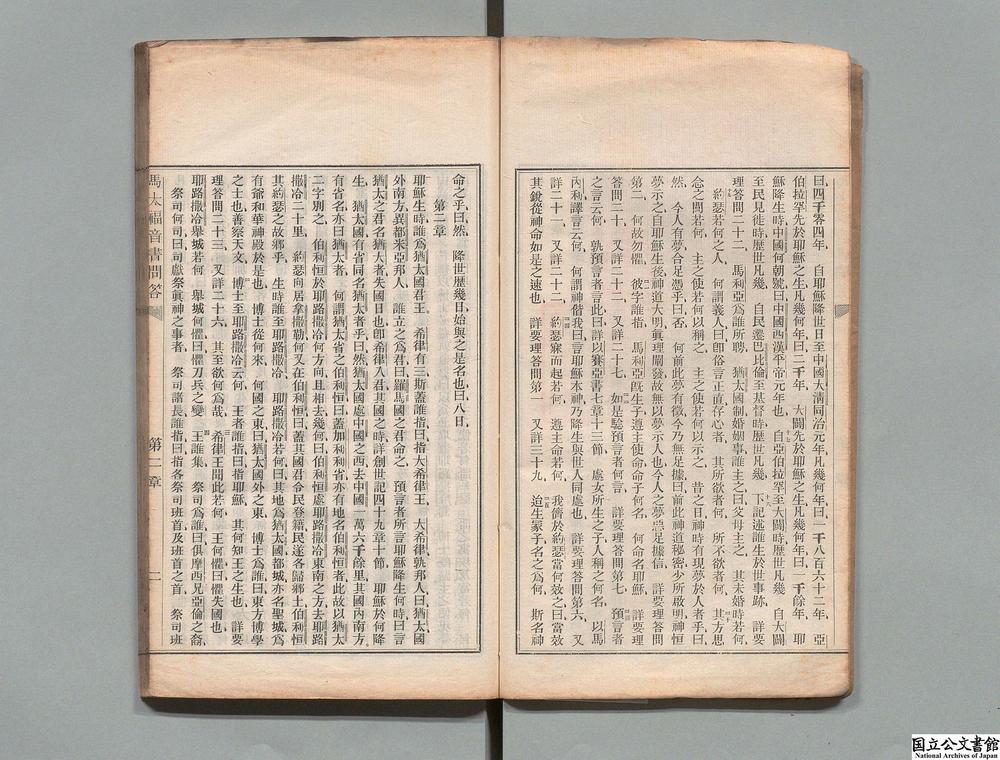 曰四千零四年　自耶穌降世日至中國大清同治元年凡幾何年曰一千八百六十二年　亞
伯拉罕先於耶穌之生凡幾何年曰二千年　大闢先於耶穌之生凡幾何年曰一千餘年　耶
穌降生時中國何朝號曰中國西漢平帝元年也　自亞伯拉罕至大闢時歷世凡幾　自大闢
至民見徙時歷世凡幾　自民遷巴比倫至基督時歷世凡幾　下記述誰生於世事跡　詳要
理答問二十二　馬利亞爲誰所聘　猶太國制婚姻事誰主之曰父母主之　其未婚時若何
約瑟若何之人　何謂義人曰卽俗言正直存心者　其所欲者何　所不欲者何　其方思
念之間若何　主之使若何以稱之　主之使若何以示之　昔之日神時有現夢於人者乎曰
然　今人有夢合足憑乎曰否　何前此夢有徵今乃無足據曰前此神道秘密少所啟明神恒
夢示之自耶穌生後神道大明眞理闡發故無以夢示人也今人之夢惡足據信　詳要理答問
第二　何故勿懼　彼字誰指　馬利亞旣生子約瑟遵主使命命子何名　何命名耶穌　詳要理
答問二十　又詳二十二　又詳二十七　如是騐預言者何言　詳要理答問第七　預言者
之言云何　孰預言者言此曰詳以賽亞書七章十三節　處女所生之子人稱之何名　以馬
內利譯言云何　何謂神偕我曰言耶穌本神乃降生與世人同處也　詳要理答問第六　又
詳二十一　又詳二十二　約瑟寐而起若何　遵主命若何　我儕於約瑟當何效之曰當效
其銳從神命如是之速也　詳要理答問第一　又詳三十九　迨生冢子名之爲何　斯名神
命之乎曰然　降世歷幾日始與之是名也曰八日
第二章
耶穌生時誰爲猶太國君王　希律有三斯蓋誰指曰指大希律王　大希律孰邦人曰猶太國
外南方異都米亞邦人　誰立之爲君曰羅馬國之君命之　預言者所言耶穌降生何時曰言
猶太之君名猶大者失國日也卽希律入君其國之時詳創世記四十九章十節　耶穌於何降
生　猶太國有省同名猶太者乎曰然猶太國處中國之西去中國一萬六千餘里其國內南方
有省名亦曰猶太者　何謂猶太省之伯利恒曰蓋加利利省亦有地名伯利恒者此故以猶太
二字別之　伯利恒於耶路撒冷何方向且相去幾何曰伯利恒處耶路撒冷東南之方去耶路
撒冷二十里　約瑟向居拿撒勒何又在伯利恒曰蓋其國君令民登籍民遂各歸鄉土伯利恒
其約瑟之故鄉乎　生時誰至耶路撒冷　耶路撒冷若何曰其地爲猶太國都城亦名聖城爲
有爺和華神殿於是也　博士從何來　何國之東曰猶太國外之東　博士爲誰曰東方博學
之士也善察天文　博士至耶路撒冷云何　王者誰指曰指耶穌　其何知王之生也　詳要
理答問二十三　又詳二十六　其至欲何爲哉　希律王聞此若何　王何懼曰懼失國也
耶路撒冷舉城若何　舉城何懼曰懼刀兵之變　王誰集　祭司爲誰曰俱摩西兄亞倫之裔
祭司何司曰司獻祭眞神之事者　祭司諸長誰指曰指各祭司班首及班首之首　祭司班
馬太福音書問答
第二章
二
国立公文書館
National Archives of Japan